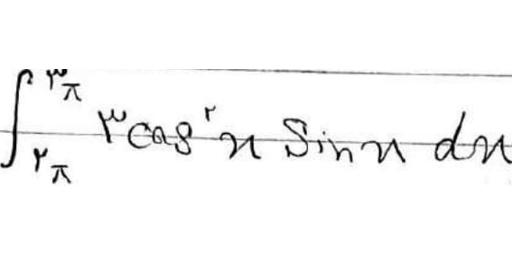 ∫_{۲π}^{۳π} ۳cos^۲x sinx dx